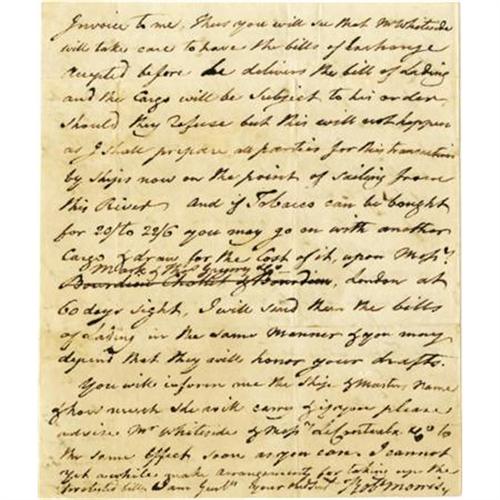 Invoice to me, Thus you will see that Mr Whiteside
will take care to have the bills of Exchange
accepted before he delivers the bill of Lading
and the Cargo will be subject to his order
should they refuse but this will not happen
as I shall prepare all parties for this transaction
by ships now on the point of sailing from
this River And if Tobacco can be bought
for 20/ to 22/6 you may go on with another
Cargo & draw for the Cost of it, upon Messrs.
Mark & Thos Gregory & Co
Bourdieu Chollet & Bourdieu, London at
60 days sight, I will send them the bills
of lading in the same Manner & you may
depend that they will honor your drafts.
You will inform me the Ships & Masters Name
& how much she will carry & if you please
advise Mr Whiteside & Messrs. & Co to
the same effect soon as you can. I cannot
yet awhile make arrangements for taking up the
protested bills I am Gentn your Robt Morris